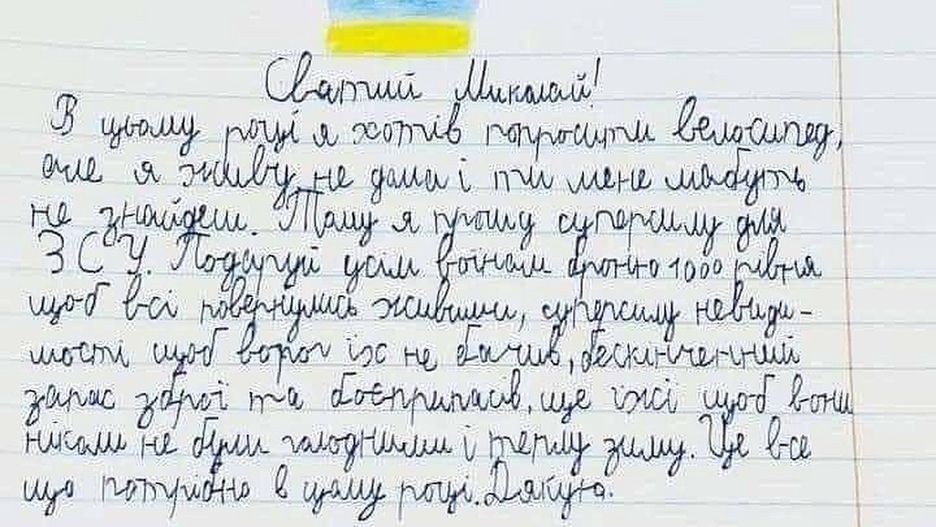 Святий Миколай!
В цьому році я хотів попросити велосипед,
але я живу не дома і ти мене мабуть
не знайдеш. Тому я прошу суперсилу для
ЗСУ. Подаруй усім воїнам броню 1000 рівня
щоб всі повернулись живими, суперсилу невиди-
мості щоб ворог їх не бачив, безкінченний
запас зброї та боєприпасів, ще їжі щоб вони
ніколи не були голодними і теплу зиму. Це все
що потрібно в цьому році. Дякую.